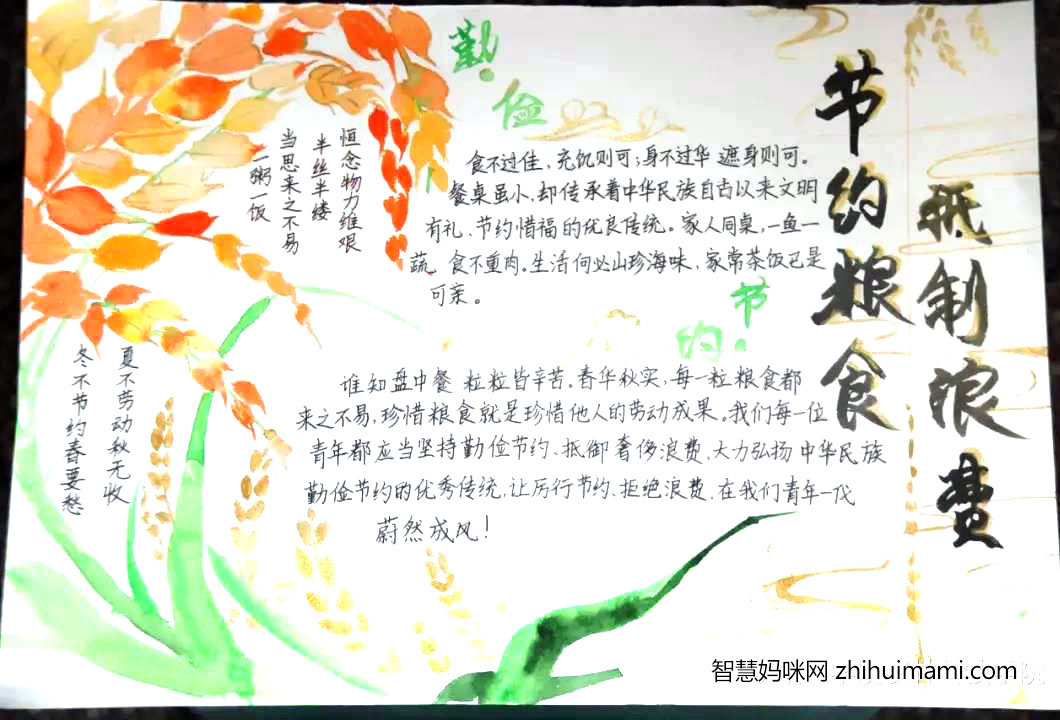 节约粮食
抵制浪费
勤俭
食不过佳，充饥则可；身不过华 遮身则可。
餐桌虽小，却传承着中华民族自古以来文明
有礼、节约惜福的优良传统。家人同桌，一鱼一
蔬，食不重肉。生活何必山珍海味，家常茶饭已是
可亲。
恒念物力维艰
半丝半缕
当思来之不易
一粥一饭
节约
谁知盘中餐 粒粒皆辛苦。春华秋实，每一粒粮食都
来之不易，珍惜粮食就是珍惜他人的劳动成果。我们每一位
青年都应当坚持勤俭节约、抵御奢侈浪费、大力弘扬中华民族
勤俭节约的优秀传统，让厉行节约、拒绝浪费，在我们青年一代
蔚然成风！
夏不劳动秋无收
冬不节约春要愁
智慧妈咪网 zhihuimami.com